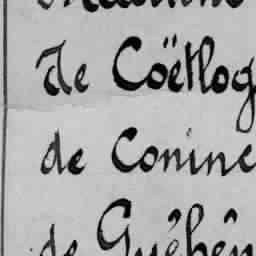 de Coëtlog
de Coninc
de Guéhên